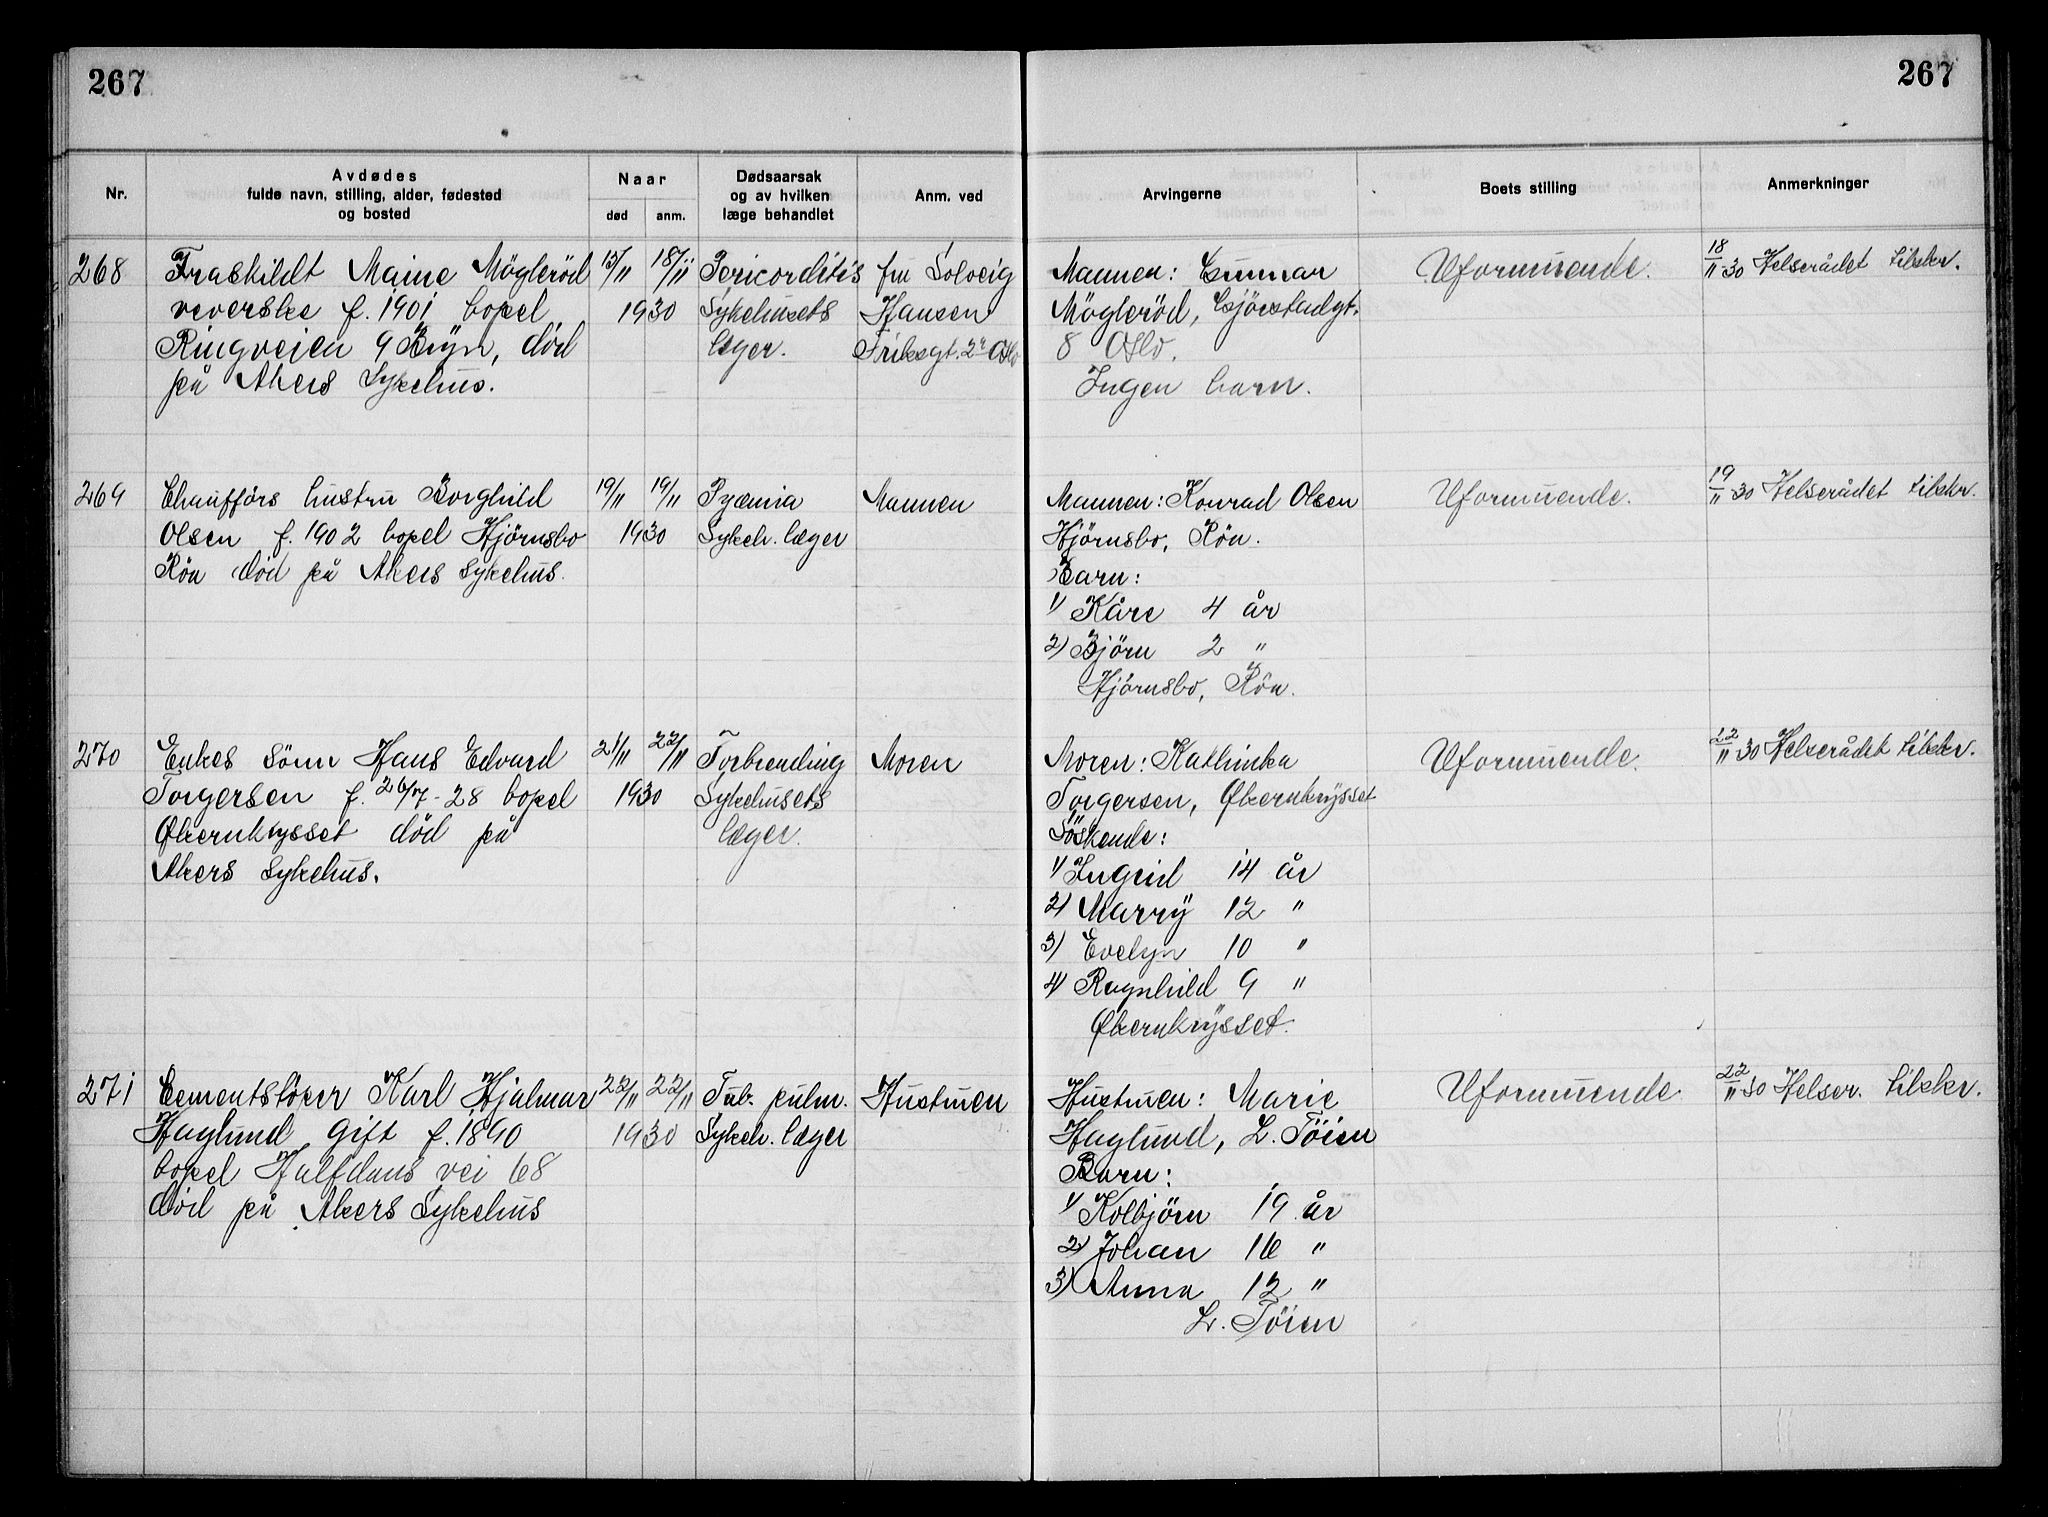 267
267
Nr.
Avdødes
fulde navn, stilling, alder, fødested
og bosted
Naar
død
anm.
Dødsaarsak
og av hvilken
læge behandlet
Anm. ved
Arvingerne
Boets stilling
Anmerkninger
268
Fraskildt Maine Møglerød
veverske f. 1901 bopel
Ringveien 9 Bryn, død
på Akers Sykehus.
15/11 18/11
1930
Pericorditis
Sykehusets
læger.
fru Solveig
Hansen
Oslo
Mannen: Gunnar
Møglerød,
8 Oslo.
Ingen barn.
Uformuende.
18/11 30 Helserådet tilskr.
269
Chaufförs hustru Borghild
Olsen f. 1902 bopel Hjörnsbo
Røa død på Akers Sykehus.
19/11 19/11
1930
Pyæmia
Sykeh. læger
Mannen
Mannen: Konrad Olsen
Hjörnsbo, Röa.
Barn:
1) Kåre 4 år
2) Björn 2 "
Hjörnsbo, Röa.
Uformuende.
19/11 30 Helserådet tilskr.
270
Enkes sönn Hans Edvard
Torgersen f. 26/7-28 bopel
Økernkrysset död på
Akers Sykehus.
21/11 22/11
1930
Forbrending
Sykehusets
læger.
Moren
Moren: Kathinka
Torgersen, Økernkrysset
Söskende:
1) Ingrid 14 år
2) Marry 12 "
3) Evelyn 10 "
4) Ragnhild 9 "
Økernkrysset.
Uformuende.
22/11 30 Helserådet tilskr.
271
Cementstöper Karl Hjalmar
Haglund gift f. 1890
bopel Halfdans vei 68
død på Akers Sykehus
22/11 22/11
1930
Tub. pulm.
Sykeh. læger
Hustruen
Hustruen: Marie
Haglund, L. Töien
Barn:
1) Kolbjörn 19 år
2) Johan 16 "
3) Anna 12 "
L. Töien
Uformuende
22/11 30 Helser. tilskr.